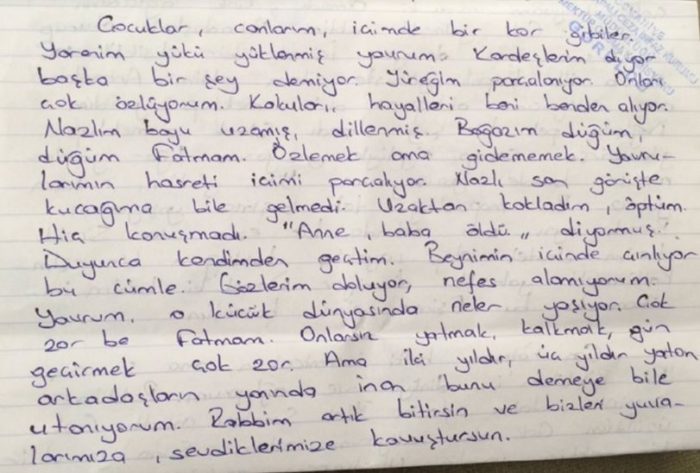 Çocuklar, canlarım, içimde bir kor gibiler.
Yarenim yükü yüklenmiş yavrum. Kardeşlerim diyor
başka bir şey demiyor. Yüreğim parçalanıyor. Onları
çok özlüyorum. Kokuları, hayalleri beni benden alıyor.
Nazlım boyu uzamış, dillenmiş. Boğazım düğüm
düğüm Fatmam. Özlemek ama gidememek. Yavru-
larımın hasreti içimi parçalıyor. Nazlı son görüşte
kucağıma bile gelmedi. Uzaktan kokladım, öptüm.
Hiç konuşmadı. "Anne, baba öldü" diyormuş.
Duyunca kendimden geçtim. Beynimin içinde çınlıyor
bu cümle. Gözlerim doluyor, nefes alamıyorum.
Yavrum. o küçük dünyasında neler yaşıyor. Çok
zor be Fatmam. Onlarsız yatmak, kalkmak, gün
geçirmek çok zor. Ama iki yıldır, üç yıldır yatan
arkadaşların yanında inan bunu demeye bile
utanıyorum. Rabbim artık bitirsin ve bizleri yuva-
larımıza, sevdiklerimize kavuştursun.